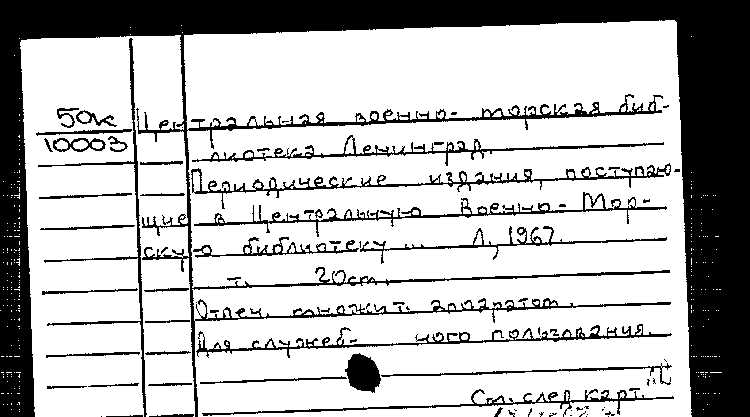 50к Центральная военно-морская биб-
10003 лиотека. Ленинград.
Периодические издания, поступаю-
щие в Центральную Военно-Мор-
скую библиотеку ... Л, 1967.
т. 20см.
Отпеч. множит. аппаратом.
Для служеб- ного пользования.
См. след карт.